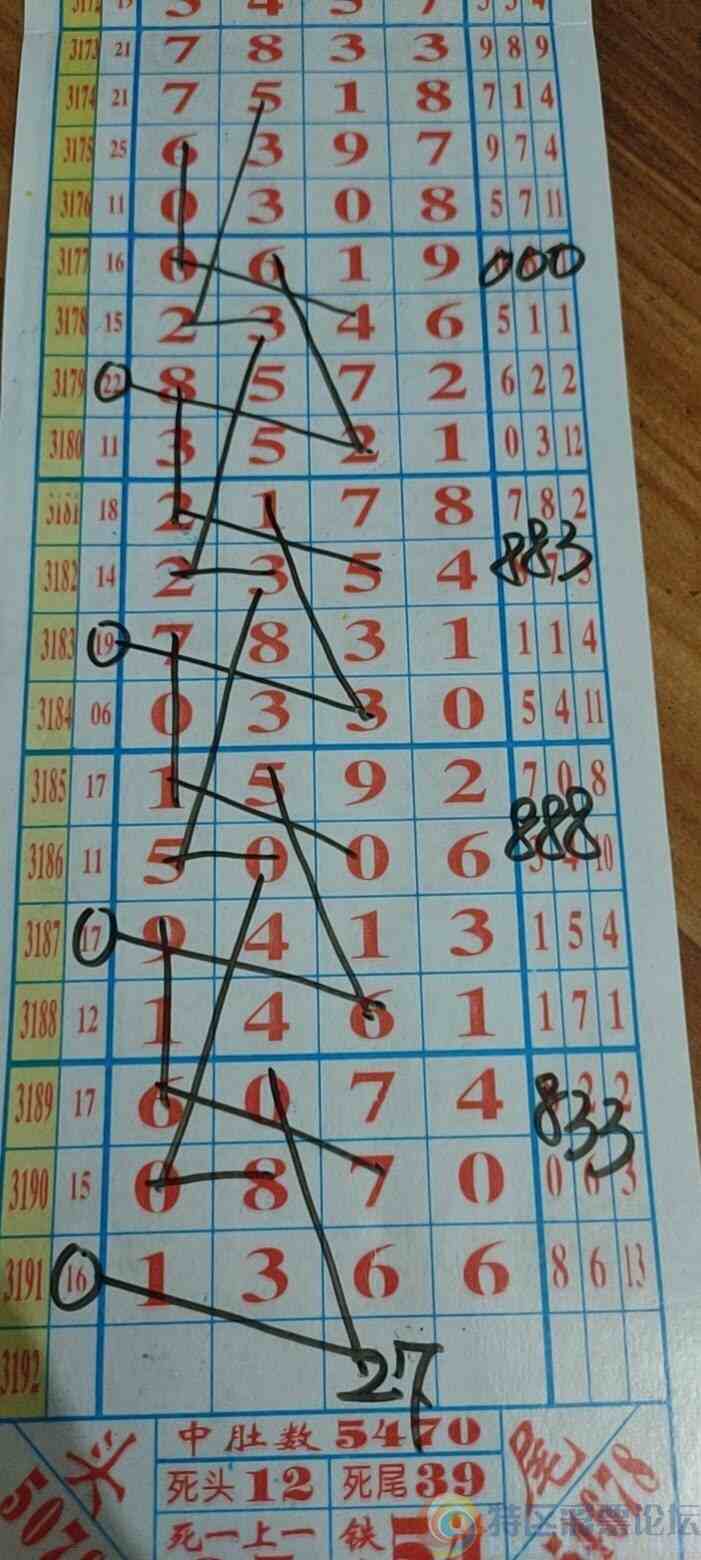 3173 21 7 8 3 3 9 8 9
3174 21 7 5 1 8 7 1 4
3175 25 6 3 9 7 9 7 4
3176 11 0 3 0 8 5 7 11
3177 16 6 6 1 9 000
3178 15 2 3 4 6 5 1 1
3179 22 8 5 7 2 6 2 2
3180 11 3 5 2 1 0 3 12
3181 18 2 1 7 8 7 8 2
3182 14 2 3 5 4 883
3183 19 7 8 3 1 1 1 4
3184 06 0 3 3 0 5 4 11
3185 17 1 5 9 2 7 0 8
3186 11 5 0 0 6 888 10
3187 17 9 4 1 3 1 5 4
3188 12 1 4 6 1 1 7 1
3189 17 6 0 7 4 833 2 2
3190 15 0 8 7 0 0 6 3
3191 16 1 3 6 6 8 6 13
3192 27
头 中肚数 5470 尾
死头 12 死尾 39
死一上一 铁
特区彩票论坛